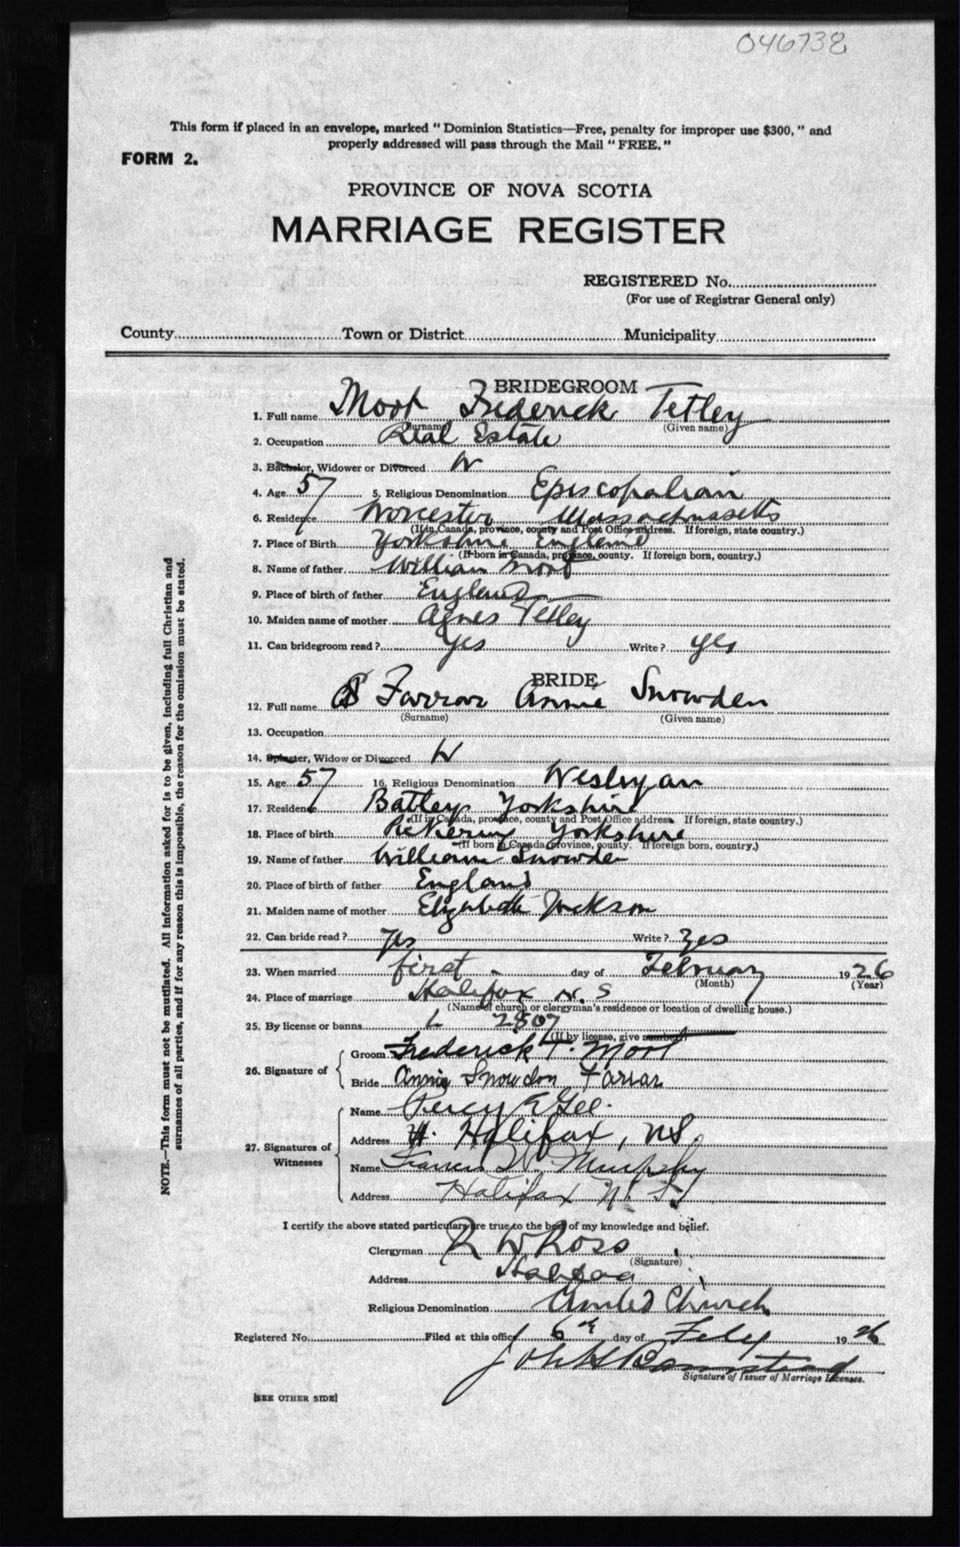 046738
This form if placed in an envelope, marked " Dominion Statistics—Free, penalty for improper use $300, " and
properly addressed will pass through the Mail " FREE. "
FORM 2.
PROVINCE OF NOVA SCOTIA
MARRIAGE REGISTER
REGISTERED No.
(For use of Registrar General only)
County Town or District Municipality
BRIDEGROOM
1. Full name Moot Frederick Tetley
(Surname) (Given name)
2. Occupation Real Estate
3. Bachelor, Widower or Divorced W
4. Age 57 5. Religious Denomination Episcopalian
6. Residence Worcester Massachusetts
(If in Canada, province, county and Post Office address. If foreign, state country.)
7. Place of Birth Yorkshire England
(If born in Canada, province, county. If foreign born, country.)
8. Name of father William Moot
9. Place of birth of father England
10. Maiden name of mother Agnes Tetley
11. Can bridegroom read? Yes Write? yes
BRIDE
12. Full name Farrar Annie Snowden
(Surname) (Given name)
13. Occupation
14. Spinster, Widow or Divorced W
15. Age 57 16. Religious Denomination Wesleyan
17. Residence Batley Yorkshire
(If in Canada, province, county and Post Office address. If foreign, state country.)
18. Place of birth Pickering Yorkshire
(If born in Canada province, county. If foreign born, country.)
19. Name of father William Snowden
20. Place of birth of father England
21. Maiden name of mother Elizabeth Jackson
22. Can bride read? Yes Write? Yes
23. When married first day of February 1926
(Month) (Year)
24. Place of marriage Halifax N. S
(Name of church or clergyman's residence or location of dwelling house.)
25. By license or banns L 2807
(If by license, give number)
26. Signature of
Groom Frederick T. Moot
Bride Annie Snowdon Farrar
27. Signatures of Witnesses
Name Percy E Gee.
Address Halifax, N.S.
Name Francis W. Murphy
Address Halifax N. S.
I certify the above stated particulars are true to the best of my knowledge and belief.
Clergyman R W Ross
(Signature)
Address Halifax
Religious Denomination United Church
Registered No. Filed at this office 6th day of Feby 1926
Signature of Issuer of Marriage Licenses.
[SEE OTHER SIDE]
NOTE.—This form must not be mutilated. All information asked for is to be given, including full Christian and
surnames of all parties, and if for any reason this is impossible, the reason for the omission must be stated.